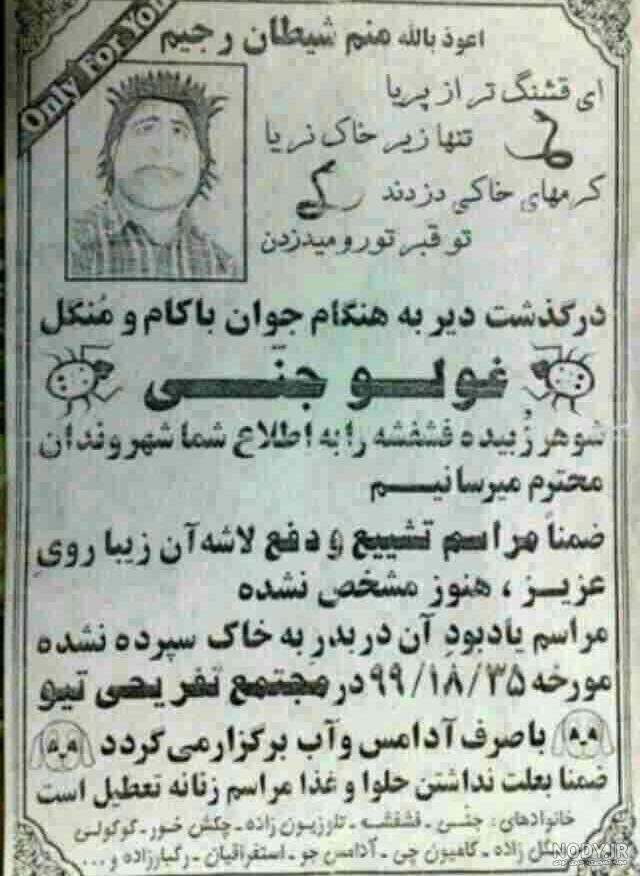 Only For You
اعوذ بالله منم شیطان رجیم
ای قشنگ تر از پریا
تنها زیر خاک نریا
کرمهای خاکی دزدند
تو قبر تورو میدزدن
درگذشت دیر به هنگام جوان باکام و مُنگل
غولو جنّی
شوهر زُبیده فشفشه را به اطلاع شما شهروندان
محترم میرسانیم
ضمناً مراسم تشییع و دفع لاشه آن زیبا رویِ
عزیز ، هنوز مشخص نشده
مراسم یادبودِ آن دربدرِ به خاک سپرده نشده
مورخه ۹۹/۱۸/۳۵ در مجتمع تفریحی تیو
با صرف آدامس و آب برگزار می گردد
ضمنا بعلت نداشتن حلوا و غذا مراسم زنانه تعطیل است
خانوادهای: جنّی - فشفشه - تلوزیون زاده - چکش خور - کوکولی
گل زاده - کامیون چی - آدامس جو - استفراقیان - رگبارزاده و ...
NODY.IR